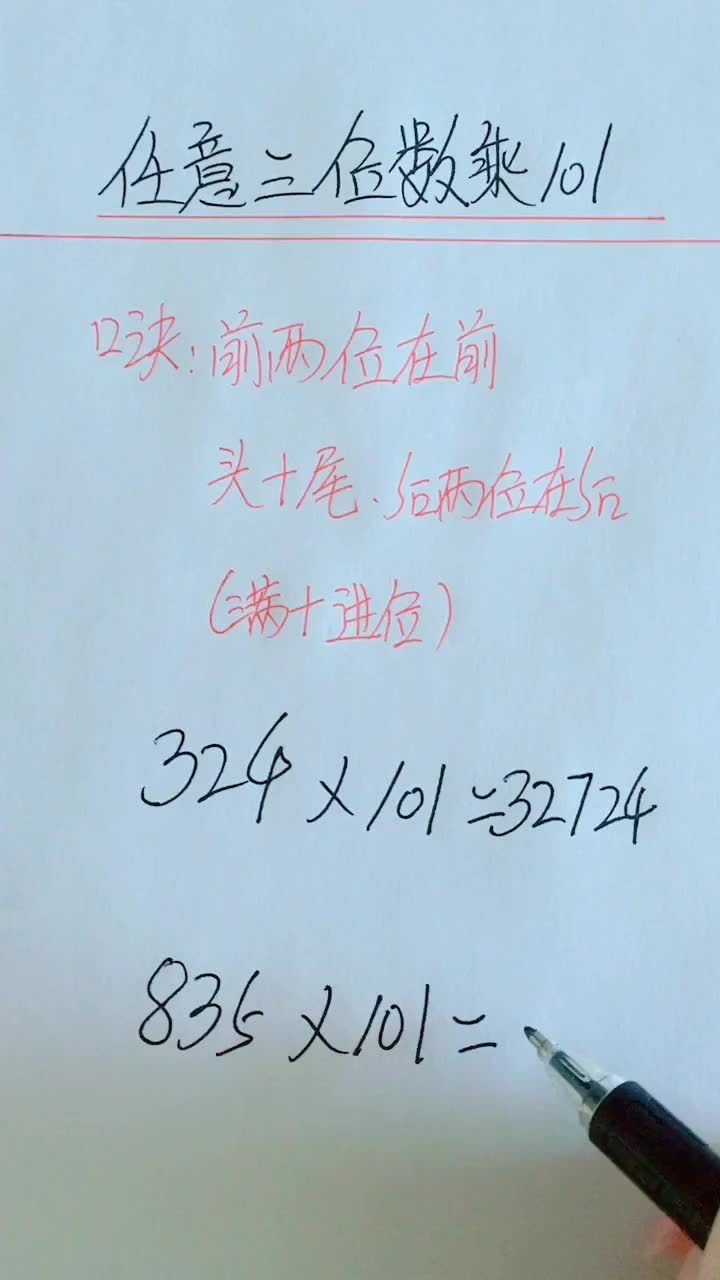 任意三位数乘101
口诀:前两位在前
头+尾.后两位在后
(满十进位)
324×101=32724
835×101=